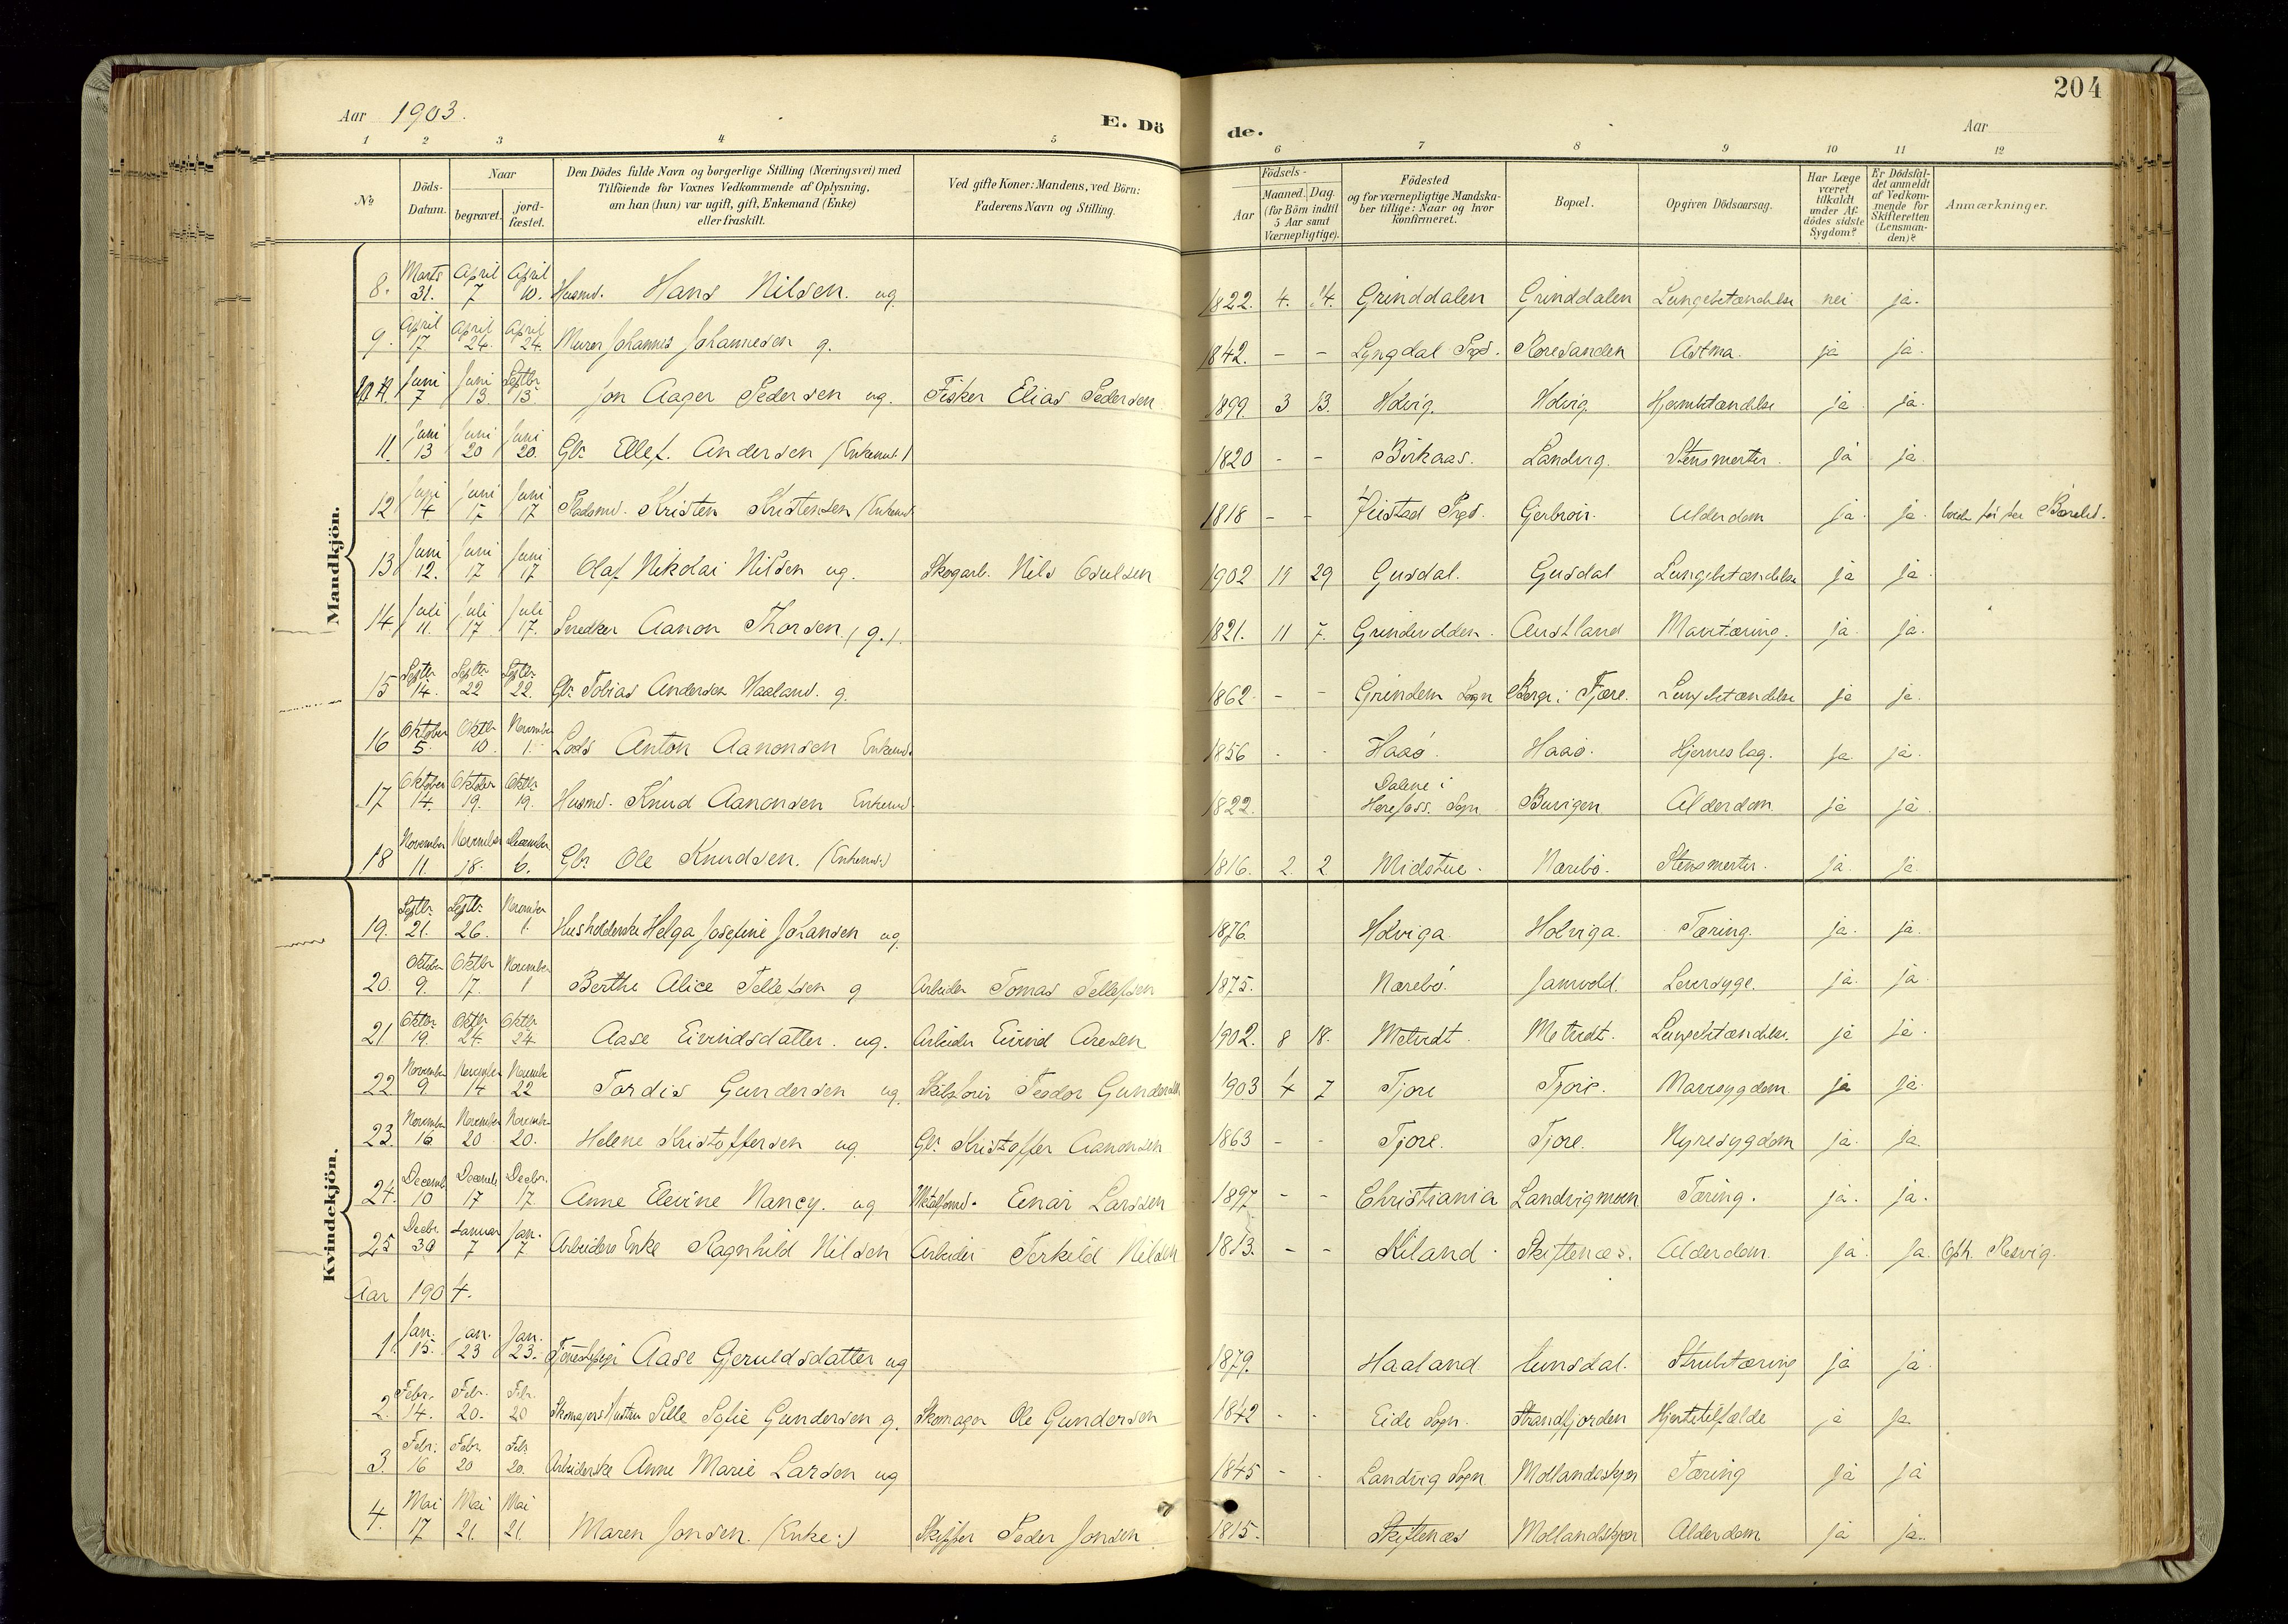 204
Aar 1903. E. Dö de. Aar
1 2 3 4 5 6 7 8 9 10 11 12
No Döds-Datum. Naar begravet. jord-fæstet. Den Dödes fulde Navn og borgerlige Stilling (Næringsvei) med Tilföiende for Voxnes Vedkommende af Oplysning, om han (hun) var ugift, gift, Enkemand (Enke) eller fraskilt. Ved gifte Koner: Mandens, ved Börn: Faderens Navn og Stilling. Födsels- Aar Maaned. Dag. (for Börn indtil 5 Aar samt Værnepligtige). Födested og for værnepligtige Mandskaber tillige: Naar og hvor konfirmeret. Bopæl. Opgiven Dödsaarsag. Har Læge været tilkaldt under Afdödes sidste Sygdom? Er Dödsfaldet anmeldt af Vedkommende for Skifteretten (Lensmanden)? Anmærkninger.
Mandkjön.
8. Marts 31. April 7 April 10. Husmd. Hans Nilsen. ug 1822. 4. 14. Grinddalen Grinddalen Lungebetændelse nei ja.
9. April 17 April 24. April 24. Murer Johannes Johannesen g. 1842. - - Lyngdal Prgd. Roresanden Astma. ja ja.
10 Juni 7 Juni 13 Septbr 13. Jon Aager Pedersen ug. Fisker Elias Pedersen 1899. 3 13. Holvig. Holvig. Hjernebetændelse ja ja.
11. Juni 13 Juni 20 Juni 20. Gbr. Ellef. Andersen (Enkemd.) 1820 - - Birkaas. Landvig. Stensmerter. ja ja
12 Juni 14. Juni 17 Juni 17 Pladsmd. Kristen Kristensen (Enkemd 1818 - - Prgd. Alderdom ja ja
13 Juni 12. Juni 17 Juni 17 Olaf Nikolai Nilsen ug. Skogarb. Nils Osulsen 1902 11 29 Gusdal. Gusdal Lungebetændelse ja ja.
14. Juli 11. Juli 17 Juli 17. Snedker Aanon Thorsen. (g.). 1821. 11 7. Austland Mavetæring. ja ja.
15 Septbr. 14. Septbr 22 Septbr. 22. Gbr. Tobias Andersen Haaland. g. 1862. - - Sogn Berge i Fjære. Lungebetændelse ja ja.
16 Oktober 5. Oktbr 10. November 1. Lods Anton Aanonsen Enkemd. 1856 - - Haaø. Haaø. Hjerneslag. ja ja.
17 Oktober 14. Oktober 19. Oktbr. 19. Husmd. Knud Aanonsen Enkemd. 1822. - Dalene i Herefoss. Sogn Buvigen Alderdom. ja ja
18 November 11. November 18. December 6. Gbr. Ole Knudsen. (Enkemd.) 1816. 2. 2. Midstue. Nærebø. Stensmerter. ja ja.
Kvindekjön.
19. Septbr. 21. Septbr. 26. November 1. Husholderske Helga Josefine Johansen ug. 1876. Holviga. Holviga. Tæring. ja. ja.
20. Oktober 9. Oktbr 17. November 1 Berthe Alice Tellefsen g Arbeider Tomas Tellefsen 1875. Nærebø. Jamvold. Leversyge. ja. ja
21 Oktbr. 19. Oktbr 24. Oktbr. 24 Aase Eivindsdatter. ug. Arbeider Eivind Aresen 1902. 8 18. Metvedt. Metvedt. Lungebetændelse. ja ja.
22 November 9. November 14 November 22 Tordis Gundersen ug. Teodor Gundersen 1903 4 7 Tjore Tjore. Mavesygdom. ja ja.
23. November 16 November 20 November 20. Helene Kristoffersen ug. Gbr. Kristoffer Aanonsen 1863 - - Tjore. Tjore. Nyresygdom ja. ja.
24. Decemb 10 Decemb 17 Decbr. 17. Anne Elevine Nancy. ug Einar Larssen 1897 - - Christiania Landvigmoen Tæring. ja. ja.
25 Decbr. 30 Januar 7 Jan. 7 Arbeiders Enke Ragnhild Nilsen Arbeider Terkild Nilsen 1813. - - Kiland. Skiftenæs. Alderdom. ja. ja. Oph. Resvig.
Aar 1904.
1. Jan. 15. Jan. 23 Jan. 23. Aase Gjeruldsdatter ug 1879. Haaland Strubetæring ja ja.
2. Febr. 14. Febr. 20. Febr. 20 Skomagers Hustru Pille Sofie Gundersen g. Skomager Ole Gundersen 1842 - - Eide Sogn. Strandfjorden Hjertetilfælde ja ja
3. Febr. 16 Febr 20 Febr 20. Arbeiderske Anne Marie Larsen ug 1845 - - Landvig Sogn Mollandskjær Tæring ja ja
4. Mai 17 Mai 21. Mai 21. Maren Jonsen. (Enke:) Skipper Peder Jonsen 1815. Skiftenæs Mollandskjær Alderdom ja ja.